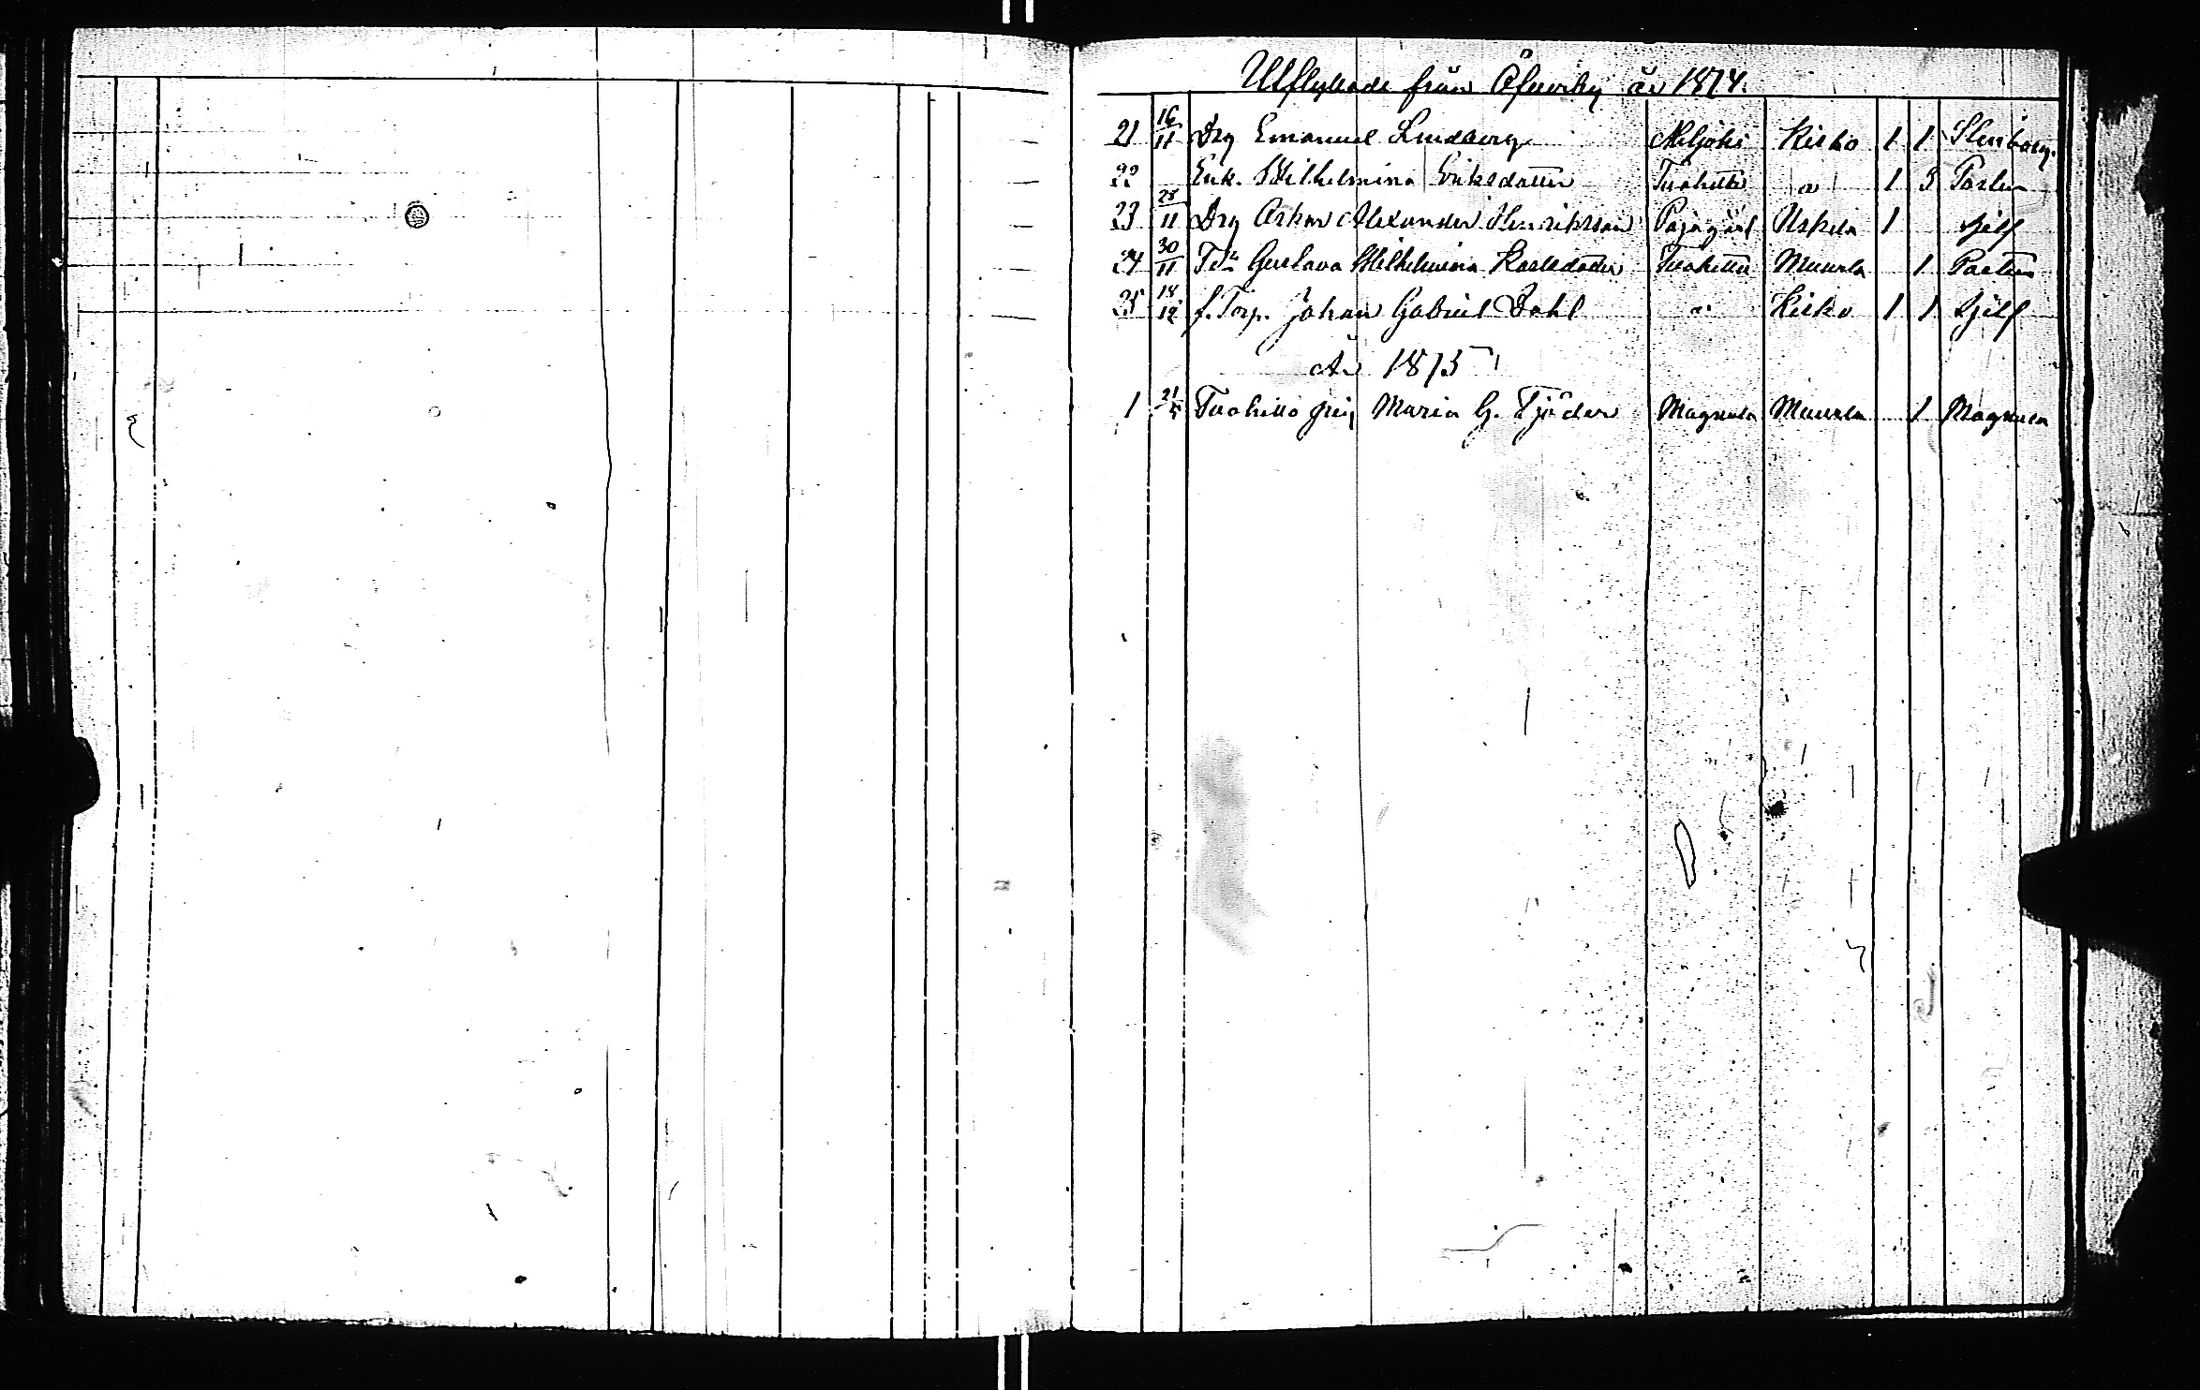 Utflyttade från Öfverby år 1874.
21 16/11 Drg Emanuel Lindberg Aljoki Kisko 1 1 Stenberg
22 Enk. Wilhelmina Eriksdotter Tuohitto a 1 3 Pastor
23 28/11 Drg Oskar Alexander Henriksson Pajagärd Uskela 1 sjelf
24 30/11 Gustava Wilhelmina Karlsdotter Tuohitto Muurla 1 Pastor
25 18/12 f. Torp. Johan Gabriel Dahl " Kisko 1 1 sjelf
År 1875
1 21/5 Tuohitto Maria G. Tjäder Magnula Muurla 1 Magnula